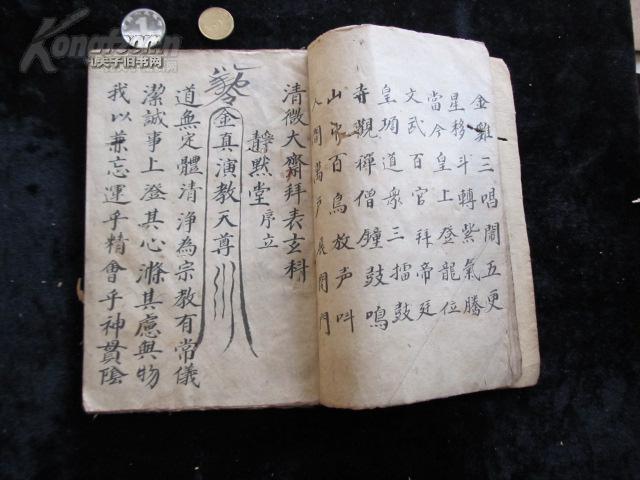 金雞三唱鬧五更
星移斗轉紫氣騰
當今皇上登龍位
文武百官拜帝廷
皇堈道衆三擂鼓
寺觀禪僧鐘鼓鳴
山中百鳥放声叫
人間萬戶展開門
清微大齋拜表玄科
靜默堂序立
金真演教天尊
道無定體清淨為宗教有常儀
潔誠事上澄其心滌其慮與物
我以兼忘運乎精會乎神貫陰
Kongfz.com
孔夫子旧书网